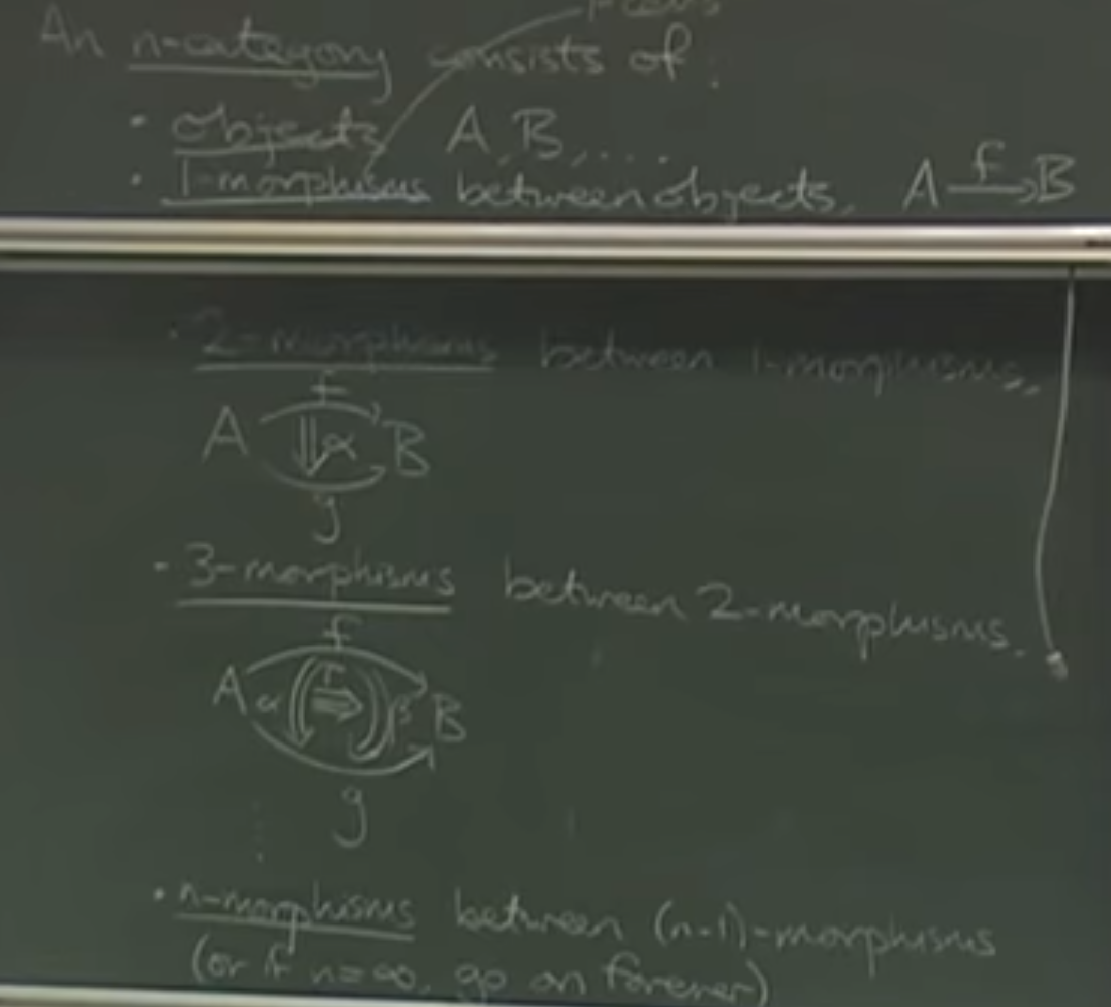 An n-category consists of:
• objects A, B, ....
• 1-morphisms between objects, A →f B
• 2-morphisms between 1-morphisms,
f
A ⇓α B
g
- 3-morphisms between 2-morphisms.
f
A α Γ β B
g
⋮
• n-morphisms between (n-1)-morphisms
(or if n=∞, go on forever)